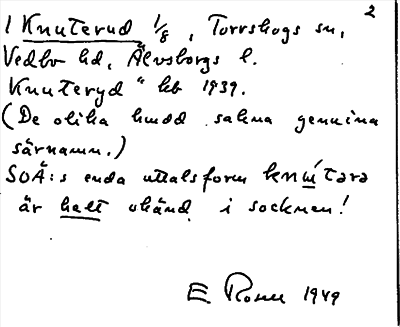 2
1 Knuterud 1/8, Torrskogs sn,
Vedbo hd, Älvsborgs l.
Knuteryd " hb 1939.
(De olika hmdd sakna genuina
särnamn.)
SOÄ:s enda uttalsform knút​ərə
är helt okänd i socknen!
E Rosell 1949